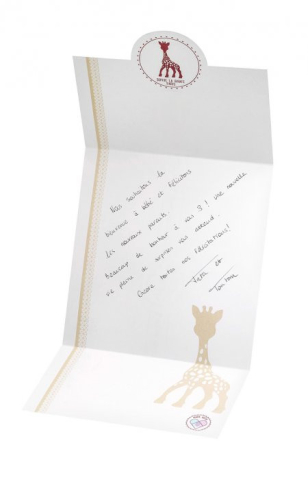 SOPHIE LA GIRAFE
Nous souhaitons la
bienvenue à bébé et félicitons
les nouveaux parents.
beaucoup de bonheur à vous 3 ! une nouvelle
vie pleine de surprises vous attend !
Encore toutes nos félicitations !